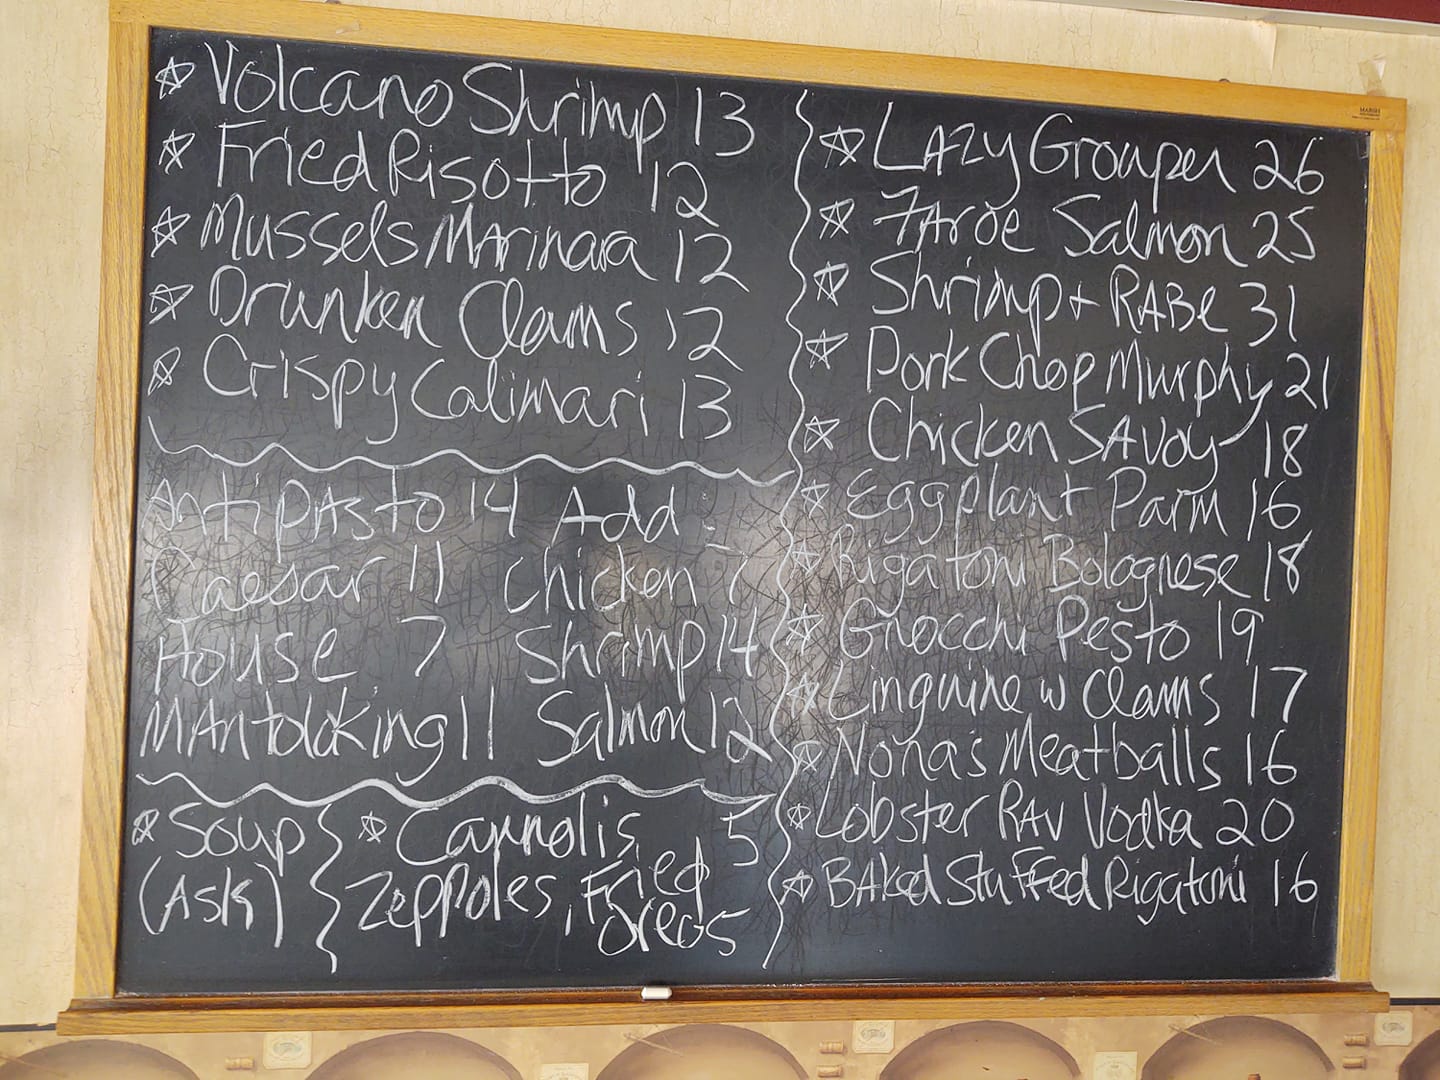 ☆ Volcano Shrimp 13
☆ Fried Risotto 12
☆ Mussels Marinara 12
☆ Drunken Clams 12
☆ Crispy Calimari 13
Antipasto 14 Add:
Caesar 11 Chicken 7
House 7 Shrimp 14
Mantoloking 11 Salmon 12
☆ Soup
(Ask)
☆ Cannolis 5
Zeppoles, Fried
Oreos 5
☆ Lazy Grouper 26
☆ Faroe Salmon 25
☆ Shrimp + Rabe 31
☆ Pork Chop Murphy 21
☆ Chicken Savoy 18
☆ Eggplant Parm 16
☆ Rigatoni Bolognese 18
☆ Gnocchi Pesto 19
☆ Linguine w Clams 17
☆ Nona's Meatballs 16
☆ Lobster Rav Vodka 20
☆ Baked Stuffed Rigatoni 16